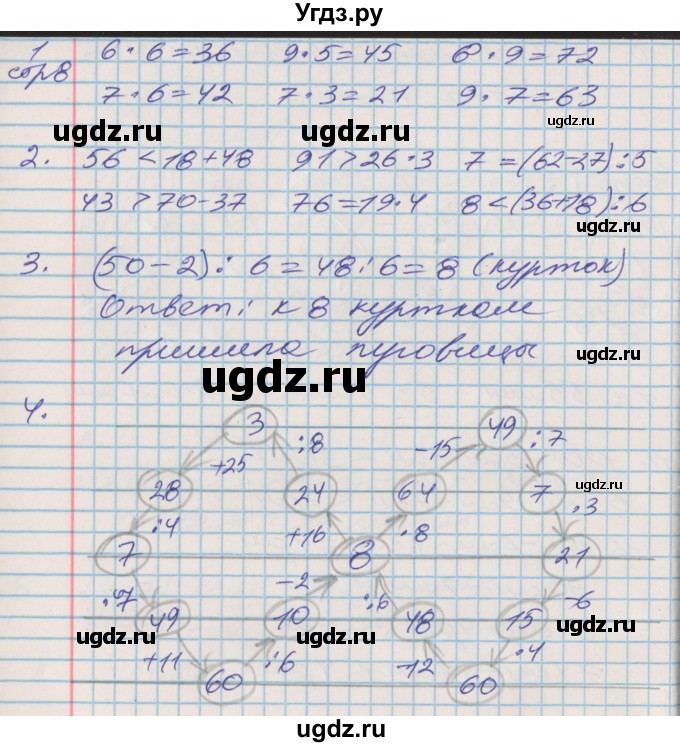 Угдз.ру
1 6 · 6 = 36 9 · 5 = 45 8 · 9 = 72
стр8
7 · 6 = 42 7 · 3 = 21 9 · 7 = 63
ugdz.ru ugdz.ru ugdz.ru
2. 56 < 18 + 48 91 > 26 · 3 7 = (62 - 27) : 5
43 > 70 - 37 76 = 19 · 4 8 < (36 + 18) : 6
ugdz.ru
3. (50 - 2) : 6 = 48 : 6 = 8 (курток)
Ответ: к 8 курткам
пришила пуговицы
ugdz.ru
ugdz.ru
4.
3 49
: 8 -15 : 7
+25
28 24 64 7
ugdz.ru
· 3
: 4 +16 · 8
7 8 21
· 7 -2 : 6 -6
49 10 48 15
ugdz.ru ugdz.ru ugdz.ru ugdz.ru
+11 : 6 -12 · 4
60 60
ugdz.ru